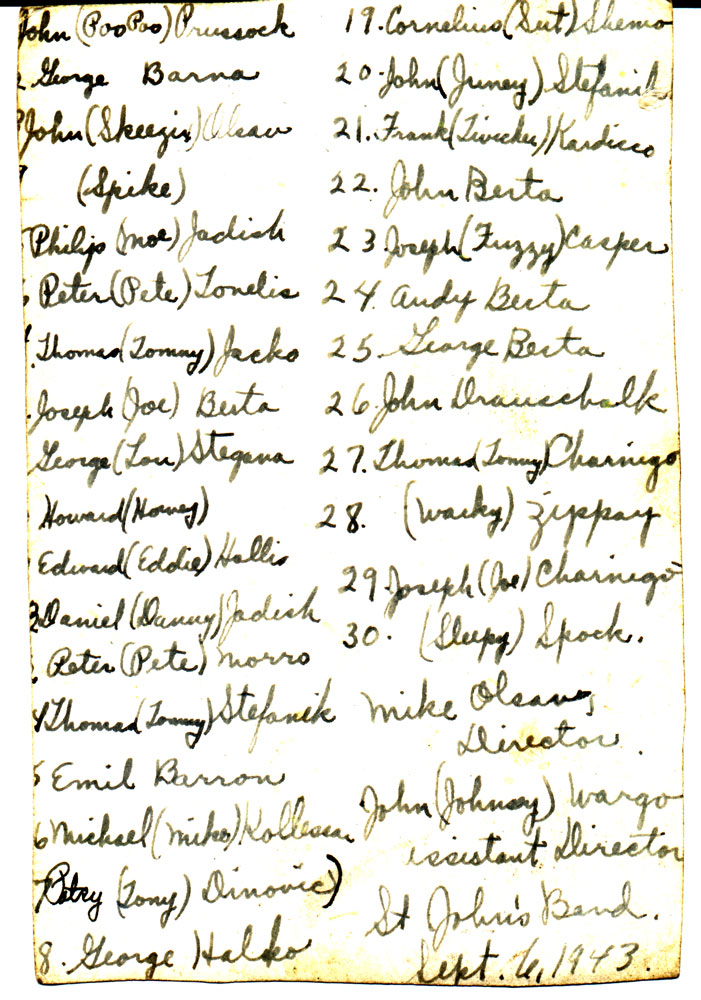 John (PooPoo) Prussock
George Barna
John (Skeezix) Olsav
(Spike)
Philip (Moe) Jadish
Peter (Pete) Tonelis
Thomas (Tommy) Jacko
Joseph (Joe) Berta
George (Lou) Stegana
Howard (Howey)
Edward (Eddie) Hallis
Daniel (Danny) Jadish
Peter (Pete) Morro
4 Thomas (Tommy) Stefanik
5 Emil Barron
6 Michael (Mike) Kollessar
7 (Tony) Dinovic)
8. George Halko
19. Cornelius (Sut) Shemo
20. John (Juney) Stefanik
21. Frank Kardisco
22. John Berta
23 Joseph (Fuzzy) Casper
24. Andy Berta
25. George Berta
26. John Drauschalk
27. Thomas (Tommy) Charnigo
28. (Wacky) Zippay
29. Joseph (Joe) Charnigo
30. (Sleepy) Spock.
Mike Olsav,
Director.
John (Johnsy) Wargo
ssistant Director
St John's Band.
Sept. 6, 1943.